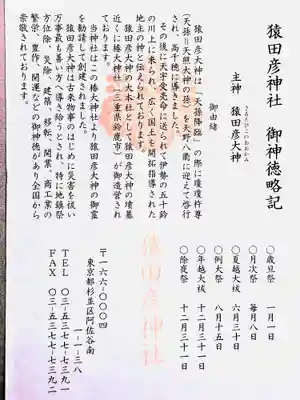 猿田彦神社 御神徳略記
主神 猿田彦大神
さるたひこのおおかみ
御由緒
猿田彦大神は「天孫降臨」の際に瓊瓊杵尊
(天孫=天照大神の孫)を天野八衢に迎えて啓行
され、高千穂に導きました。
その後に天宇受売命に送られて伊勢の五十鈴
の川上に来られ、広く国土を開拓指導された
地主の神と伝えられております。
猿田彦大神の大本社として猿田彦大神の墳墓
近くに椿大神社(三重県鈴鹿市)が御造営され
当神社はこの椿大神社より猿田彦大神の御霊
を勧請して創建されました。
猿田彦大神は古来物事のはじめに災害を祓い
万事最も善い方へ導き給うとされ、特に地鎮祭
方位除、災除、建築、移転、開業、商工業の
繁栄、豊作、開運などの御神徳があり全国から
崇敬されております。
○歳旦祭 一月一日
○月次祭 毎月八日
○夏越大祓 六月三十日
○例大祭 八月十五日
○年越大祓 十二月三十一日
○除夜祭 十二月三十一日
猿田彦神社
〒一六六-〇〇〇四
東京都杉並区阿佐谷南
一-一-三八
TEL 〇三-五三七七-七三九一
FAX 〇三-五三七七-七三九二